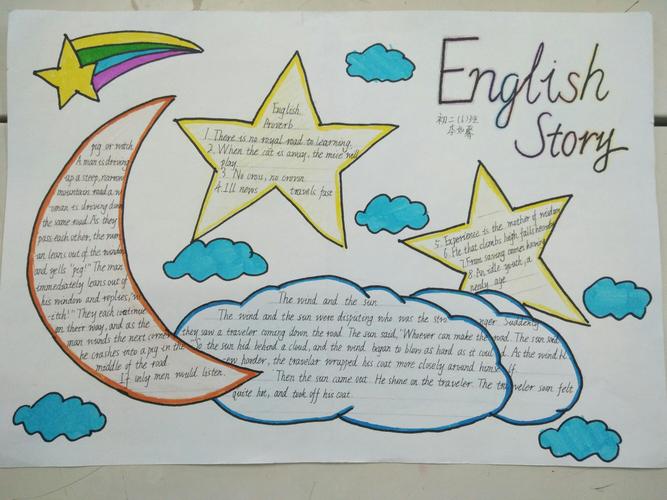 English
Story
初二(6)班
English
Proverb
1. There is no royal road to learning.
2. When the cat is away, the mice will
play.
3. No cross, no crown
4. Ill news travels fast
5. Experience is the mother of wisdom
6. He that climbs high falls heavily
7. From saving comes having
8. An idle youth, a
needy age
pig or witch
A man is driving
up a steep, narrow
mountain road a w
oman is driving down
the same road. As they
pass each other, the wom
an leans out of the window
and yells "pig!" The man
immediately leans out of
his window and replies, "w
itch!" They each continue
on their way, and as the
man rounds the next corner
he crashes into a pig in the
middle of the road.
If only men would listen.
The wind and the sun
The wind and the sun were disputing who was the stronger. Suddenly
they saw a traveler coming down the road. The sun said, "Whoever can make
So the sun hid behind a cloud, and the wind began to blow as hard as it could. As the wind bl
ew harder, the travelar wrapped his coat more closely around himself.
Then the sun came out. He shine on the traveler. The traveler soon felt
quite hot, and took off his coat.